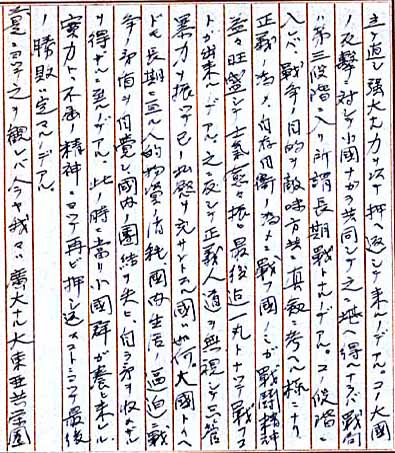 主ケ直シ強大ナ力ヲ以テ押ヘ返シテ来ルノデアル。コノ大國
ノ反撃ニ対シテ小國ナガラ共同シテ之ニ堪ヘ得ヘケレバ戰局
ハ第三段階ニ入リ所謂長期戰トナルノデアル。コノ段階ニ
入レバ戰争ノ目的ヲ敵味方共ニ真剣ニ考ヘル様ニナリ
正義ノ為メ、自存自衛ノ為メニ戰フ國ノミガ戰鬪精神
益々旺盛ニシテ士氣愈々振ヒ最後迄一丸トナツテ戰フコ
トガ出来ルノデアル。之ニ反シテ正義人道ヲ無視シテ只管
暴力ヲ振ツテ己ノ私慾ヲ充サントスル國ハ如何ニ大國ト云ヘ
ドモ長期ニ亘ル人的物資ノ消耗國内生活ノ逼迫ニ戰
争矛盾ヲ自覚シ國内ノ團結ヲ失ヒ、自ラ矛ヲ收メザル
ヲ得ザルニ至ルノデアル。此ノ時ニ當リ小國群ガ養ヒ来レル
実力ト、不屈ノ精神ニヨツテ再ビ押シ返スコトニヨツテ最後
ノ勝敗ハ定マルノデアル。
ニヨツテ之ヲ観レバ人ヲヤ我々ハ廣大ナル大東亜共栄圏